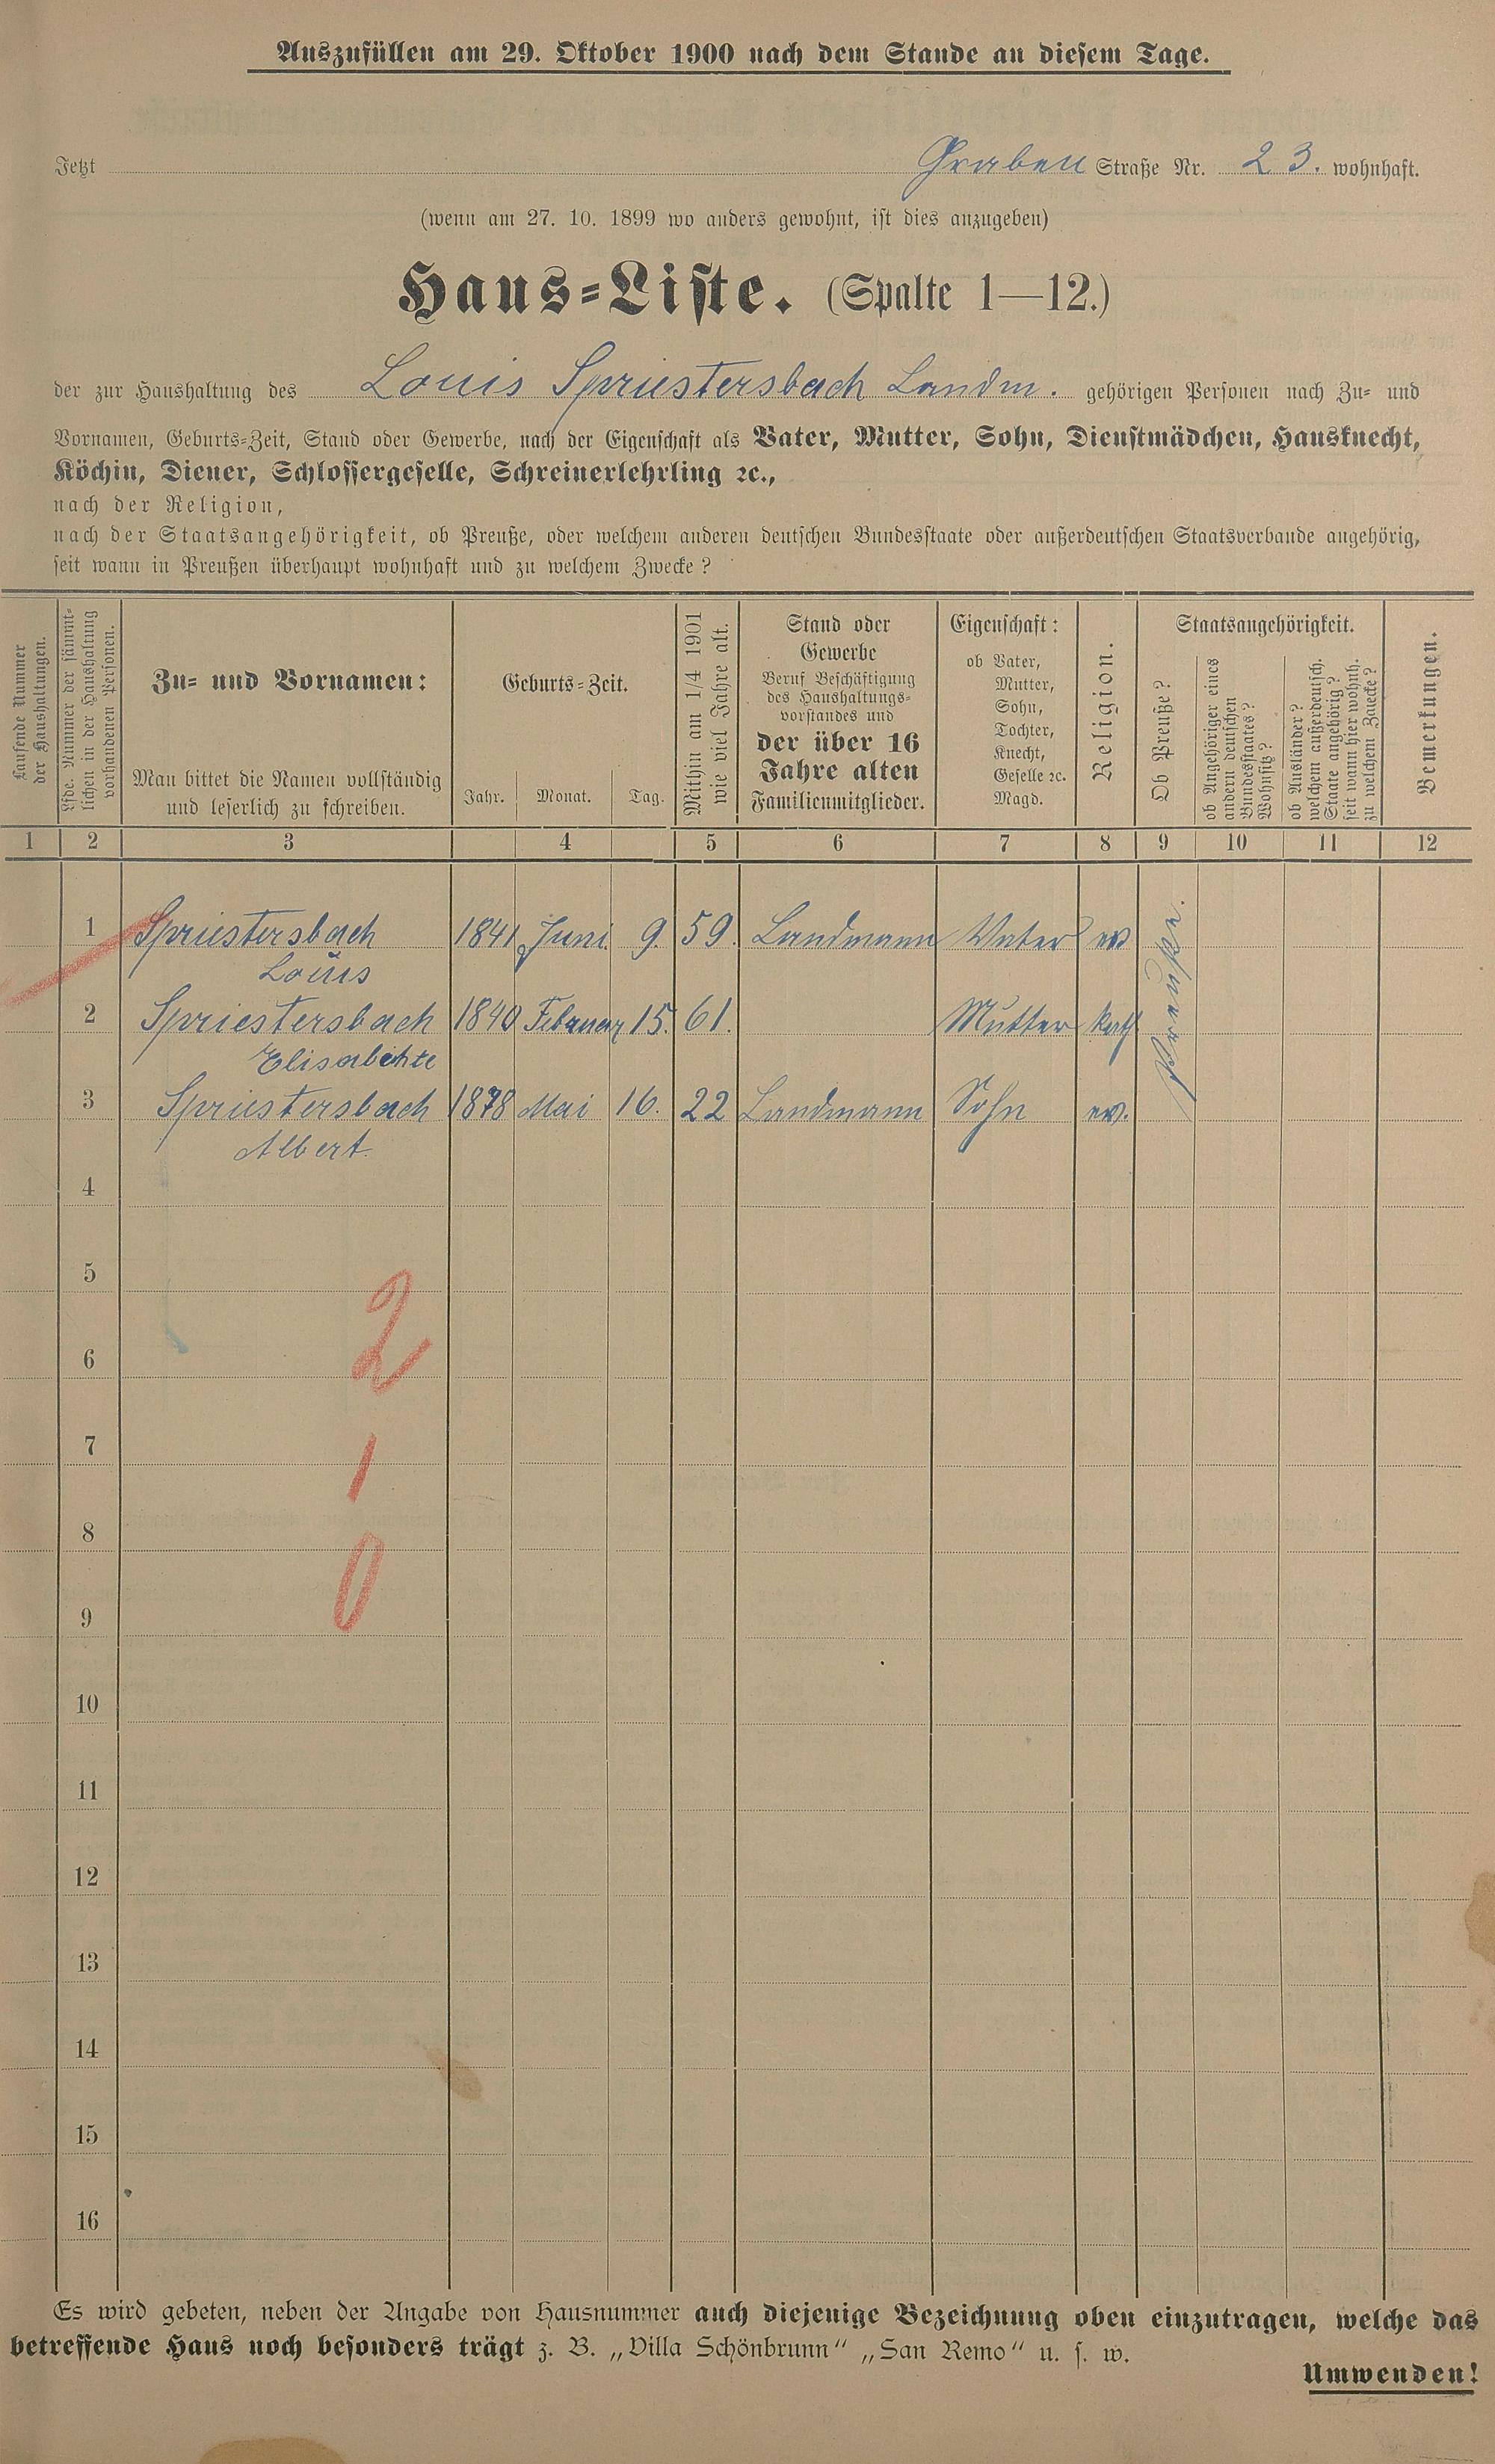 Auszufüllen am 29. Oktober 1900 nach dem Stande an diesem Tage.
Jetzt Graben Straße Nr. 23. wohnhaft.
(wenn am 27. 10. 1899 wo anders gewohnt, ist dies anzugeben)
Haus-Liste. (Spalte 1—12.)
der zur Haushaltung des Louis Spriestersbach Landm. gehörigen Personen nach Zu- und
Vornamen, Geburts-Zeit, Stand oder Gewerbe, nach der Eigenschaft als Vater, Mutter, Sohn, Dienstmädchen, Hausknecht,
Köchin, Diener, Schlossergeselle, Schreinerlehrling ꝛc.,
nach der Religion,
nach der Staatsangehörigkeit, ob Preuße, oder welchem anderen deutschen Bundesstaate oder außerdeutschen Staatsverbande angehörig,
seit wann in Preußen überhaupt wohnhaft und zu welchem Zwecke?
Laufende Nummer
der Haushaltungen.
Lfde. Nummer der sämmt-
lichen in der Haushaltung
vorhandenen Personen.
Zu- und Vornamen:
Man bittet die Namen vollständig
und leserlich zu schreiben.
Geburts-Zeit.
Jahr. Monat. Tag.
Mithin am 1/4 1901
wie viel Jahre alt.
Stand oder
Gewerbe
Beruf Beschäftigung
des Haushaltungs-
vorstandes und
der über 16
Jahre alten
Familienmitglieder.
Eigenschaft:
ob Vater,
Mutter,
Sohn,
Tochter,
Knecht,
Geselle ꝛc.
Magd.
Religion.
Staatsangehörigkeit.
Ob Preuße?
ob Angehöriger eines
andern deutschen
Bundesstaates?
Wohnsitz?
ob Ausländer?
welchem außerdeutsch.
Staate angehörig?
seit wann hier wohnh.
zu welchem Zwecke?
Bemerkungen.
1 2 3 4 5 6 7 8 9 10 11 12
1 Spriestersbach 1841 Juni 9. 59. Landmann Vater ev Preuße.
Louis
2 Spriestersbach 1840 Februar 15. 61. Mutter kath
Elisabehte
3 Spriestersbach 1878 Mai 16. 22 Landmann Sohn ev.
Albert.
4
5
2
6
7
1
8
0
9
10
11
12
13
14
15
16
Es wird gebeten, neben der Angabe von Hausnummer auch diejenige Bezeichnung oben einzutragen, welche das
betreffende Haus noch besonders trägt z. B. „Villa Schönbrunn“ „San Remo“ u. s. w.
Umwenden!